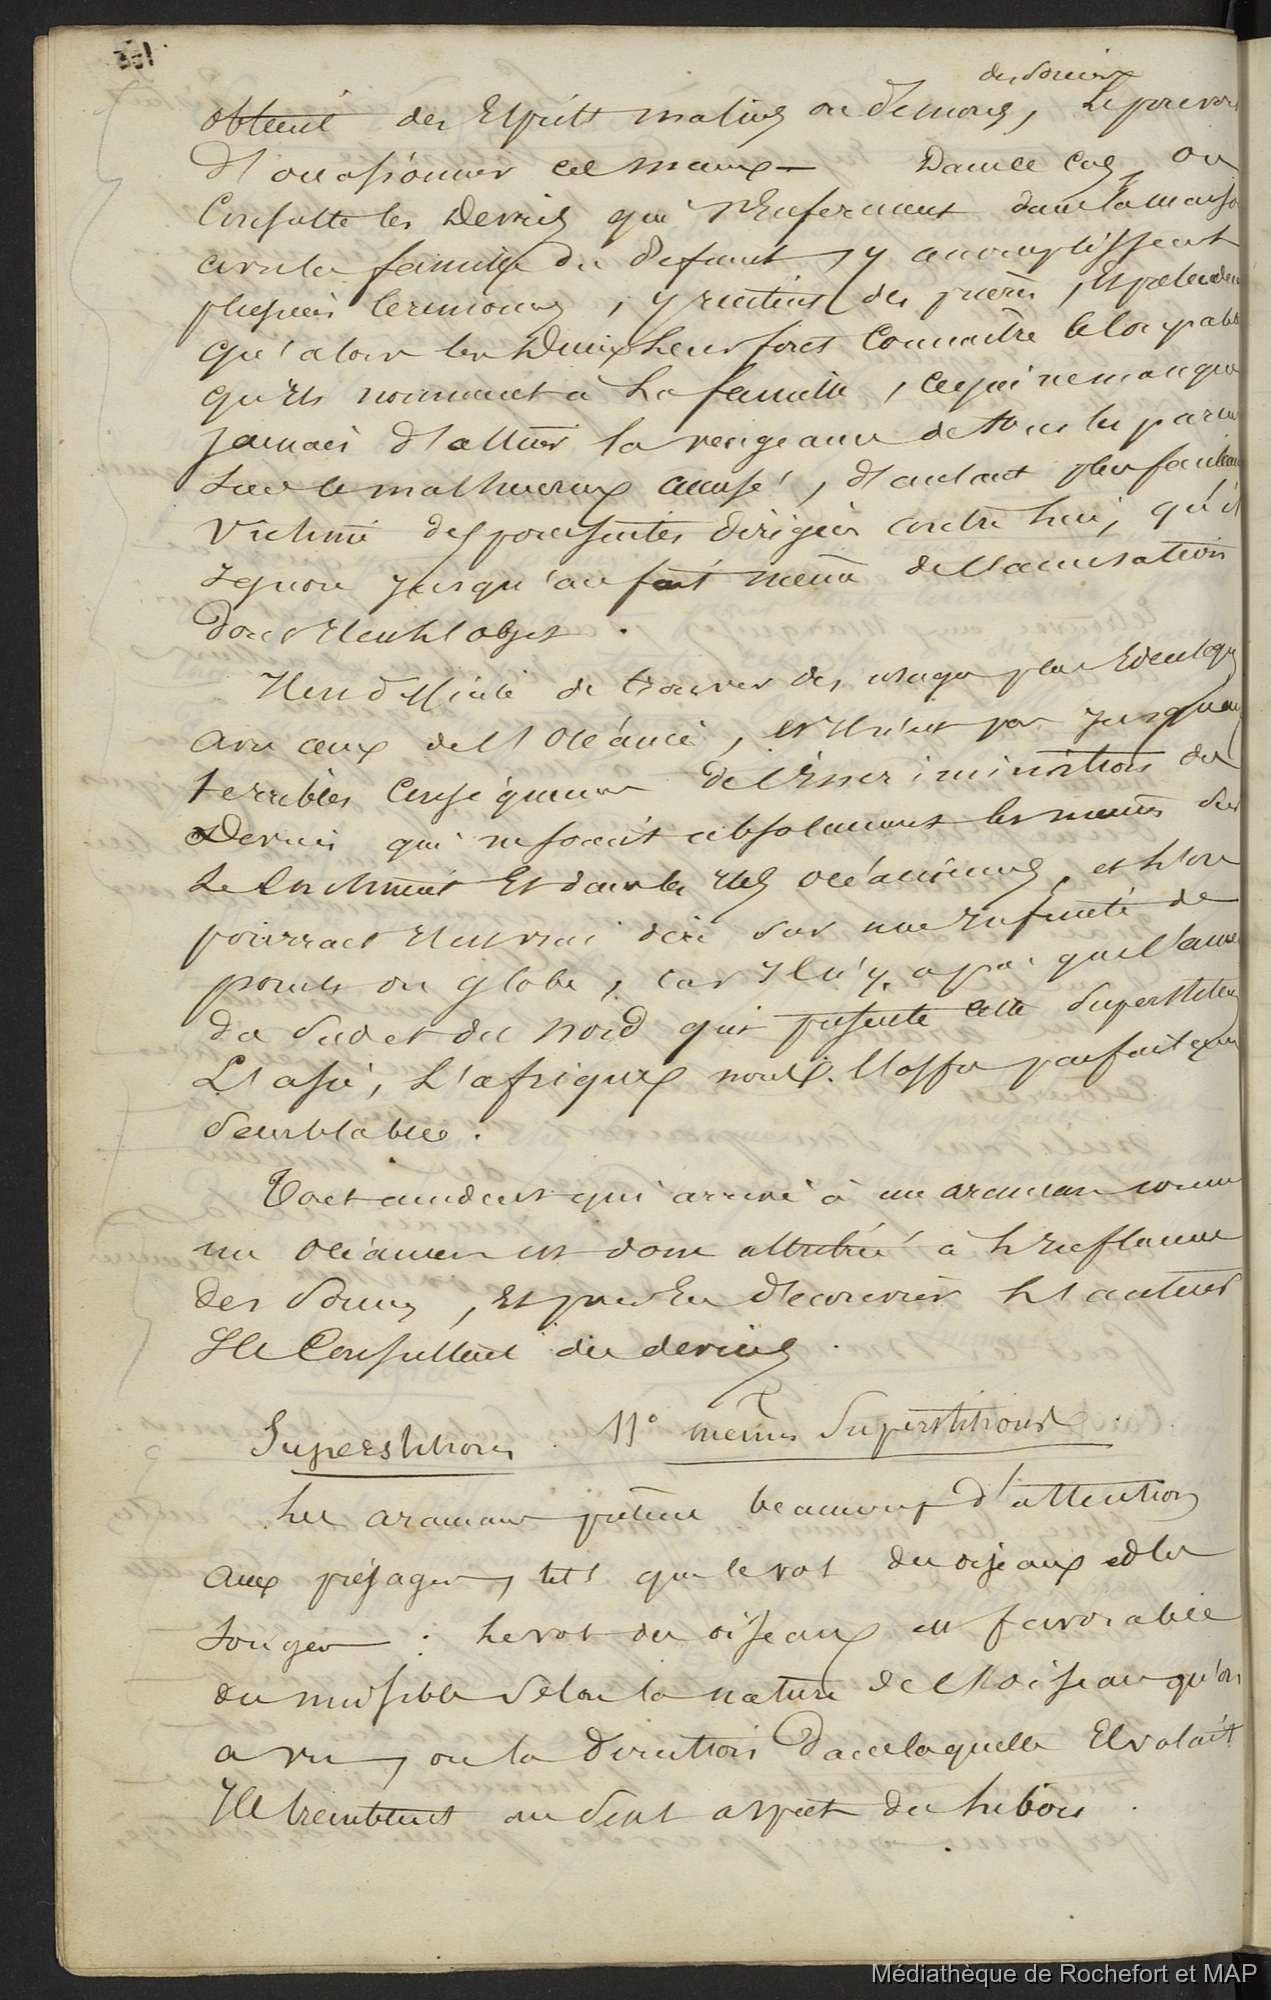 des sorciers
obtenu des Esprits malins ou Demons, le pouvoir
d'occasionner ces maux — Dans ce cas, on
Consulte les Devins qui s'Enferment dans la maison
avec la famille du Defunt, y accomplissent
plusieurs Ceremonies, y recitent des prieres, Et pretendent
qu'alors les Dieux leur font Connaitre le Coupable
qu'ils nomment à La famille, ce qui ne manque
Jamais d'attirer la vengeance de tous les parents
Sur le malheureux accusé, d'autant plus facilement
Victime des poursuites dirigées contre lui, qu'il
Ignore Jusqu'au fait même de l'accusation
Dont Il est l'objet.
Il est difficile de trouver des usages plus Identiques
avec ceux de l'Océanie, et Il n'est pas Jusqu'aux
terribles Conséquences De des
Devins qui ne soient absolument les mêmes sur
Le Continent Et dans les Iles océaniennes, et l'on
pourrait Il est vrai dire sur une Infinité de
points du globe, car Il n'y a pas que l'amérique
du Sud et du nord qui présente cette Superstition
L'asie, L'afrique nous l'offre parfaitement
Semblable.
Tout accident qui arrive à un araucan comme
un Océanien est donc attribué à L'Influence
Des Sorciers, Et pour En decouvrir L'auteur
Ils Consultent des devins.
Superstitions. 11° mêmes Superstitions.
Les araucans prêtent beaucoup d'attention
aux présages, tels que le vol des oiseaux et les
Songes : Le vol des oiseaux est favorable
ou nuisible selon la nature de l'oiseau qu'on
a vu, ou la direction dans laquelle Il volait
Ils tremblent au seul aspect du hibou.
Médiathèque de Rochefort et MAP